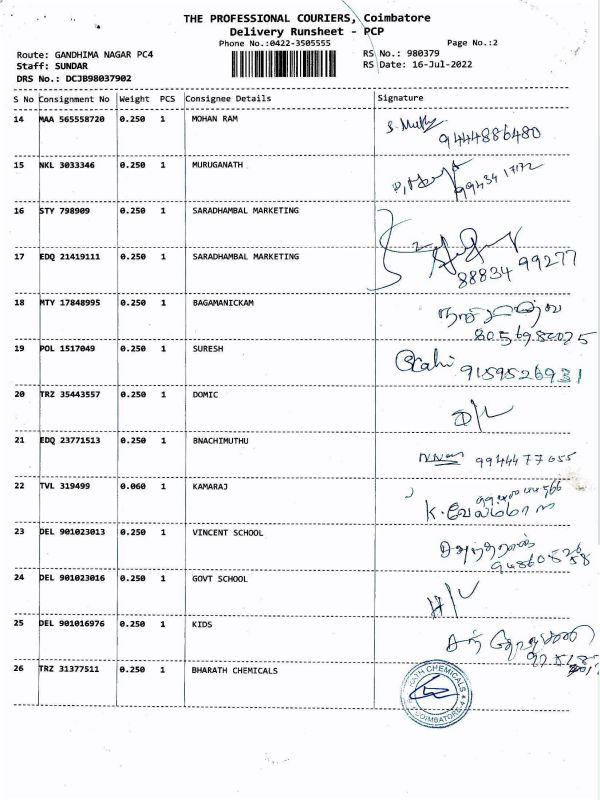 THE PROFESSIONAL COURIERS, Coimbatore
Delivery Runsheet - PCP
Phone No.:0422-3505555 Page No.:2
Route: GANDHIMA NAGAR PC4 RS No.: 980379
Staff: SUNDAR RS Date: 16-Jul-2022
DRS No.: DCJB98037902
S No Consignment No Weight PCS Consignee Details Signature
14 MAA 565558720 0.250 1 MOHAN RAM S. Muthu
9444886480
15 NKL 3033346 0.250 1 MURUGANATH
99434 17172
16 STY 798909 0.250 1 SARADHAMBAL MARKETING
17 EDQ 21419111 0.250 1 SARADHAMBAL MARKETING
88834 99277
18 MTY 17848995 0.250 1 BAGAMANICKAM
19 POL 1517049 0.250 1 SURESH
9159526931
20 TRZ 35443557 0.250 1 DOMIC D/L
21 EDQ 23771513 0.250 1 BNACHIMUTHU
9944477055
22 TVL 319499 0.060 1 KAMARAJ
23 DEL 901023013 0.250 1 VINCENT SCHOOL
24 DEL 901023016 0.250 1 GOVT SCHOOL
25 DEL 901016976 0.250 1 KIDS
26 TRZ 31377511 0.250 1 BHARATH CHEMICALS
CHEMICALS
COIMBATORE